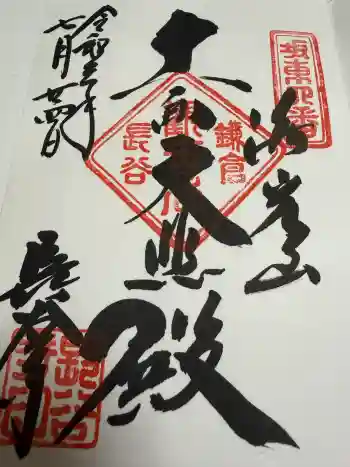 坂東四番
海光山
十一面大悲殿
鎌倉
長谷
令和三年
七月廿四日
長谷寺